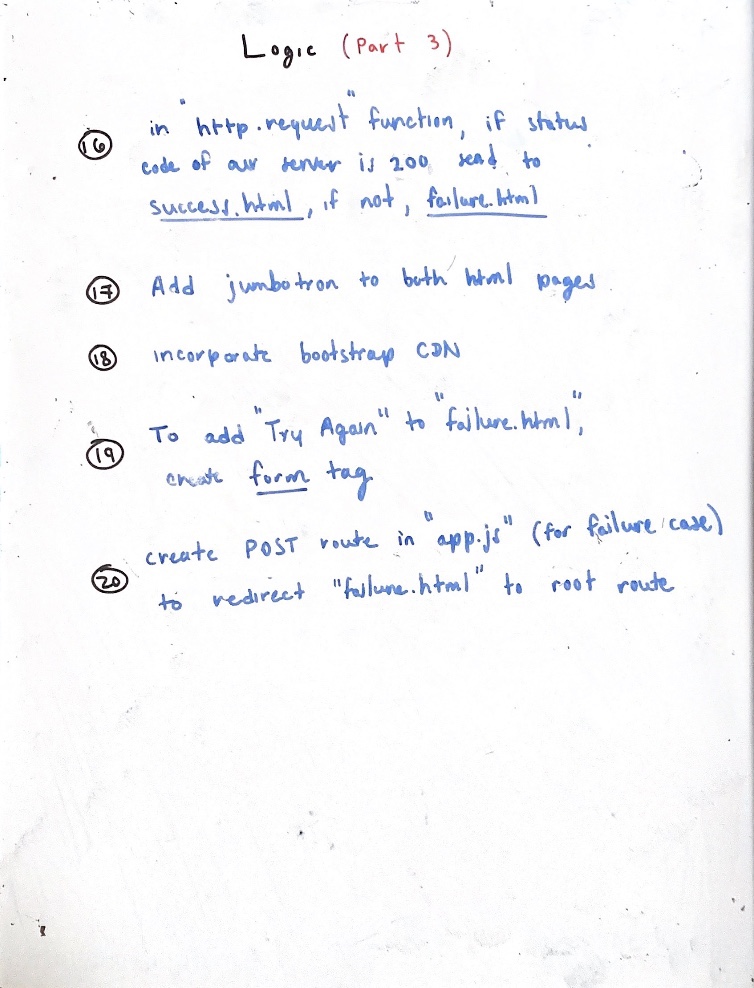 Logic (Part 3)
16 in "http.request" function, if status
code of our server is 200 send to
success.html, if not, failure.html
17 Add jumbotron to both html pages
18 incorporate bootstrap CDN
19 To add "Try Again" to "failure.html",
create form tag
20 create POST route in "app.js" (for failure case)
to redirect "failure.html" to root route